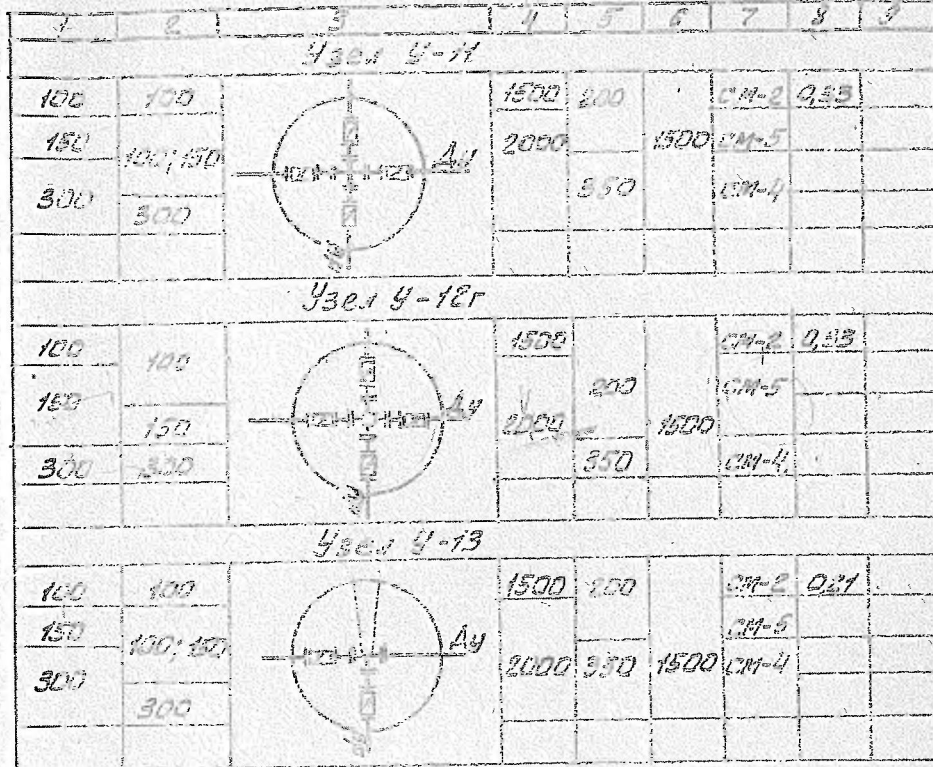 1 2 3 4 5 6 7 8 9
Узел У-11
100 100 1500 200 СМ-2 0,33
150 100; 150 Ду 2000 1500 СМ-5
300 300 350 СМ-4
Ду
Узел У-12г
100 100 1500 СМ-2 0,33
150 150 Ду 2000 200 1500 СМ-5
300 300 350 СМ-4
Узел У-13
100 100 1500 200 СМ-2 0,21
150 100; 150 Ду СМ-5
300 300 2000 350 1500 СМ-4
Ду